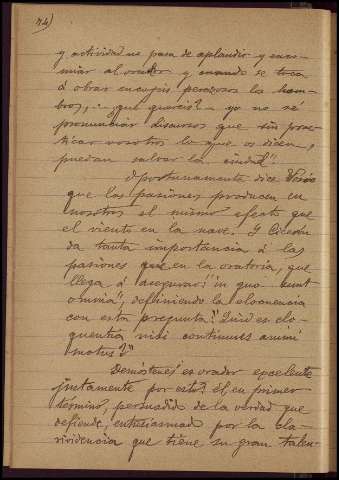 74)
y actividad no pasa de aplaudir y encu-
miar al orador y cuando se toca
á obrar encogéis perezosos los hom-
bros, ... ¿qué queréis?- yo no sé
pronunciar discursos que sin prac-
ticar vosotros lo que os dicen,
puedan salvar la ciudad".
Oportunamente dice
que las pasiones producen en
nosotros el mismo efecto que
el viento en la nave. Y Cicerón
da tanta importancia á las
pasiones que en la oratoria, que
llega á asegurar: "in quo sunt
omnia", definiendo la elocuencia
con esta pregunta? "Quid est elo-
quentia nisi continuus animi
motus?"
Demóstenes es orador excelente
justamente por esto: él, en primer
término, persuadido de la verdad que
defiende, entusiasmado por la cla-
rividencia que tiene su gran talen-